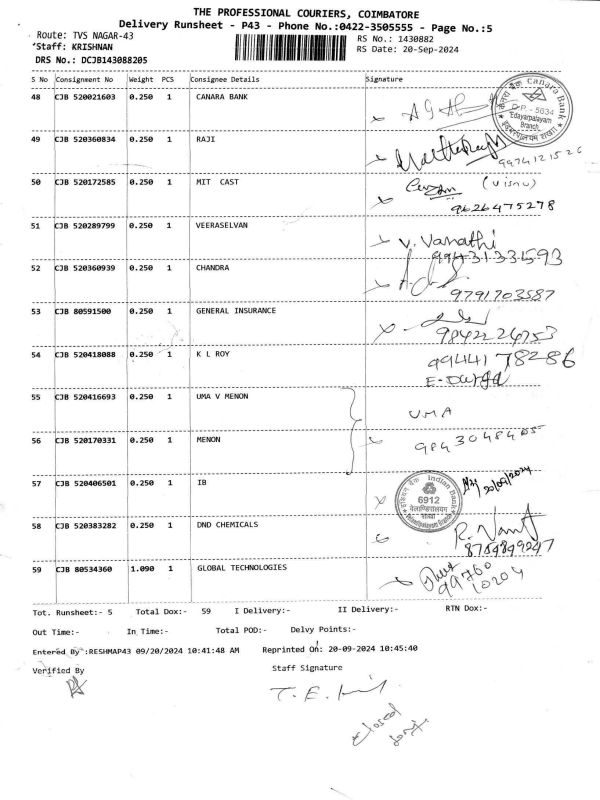 THE PROFESSIONAL COURIERS, COIMBATORE
Delivery Runsheet - P43 - Phone No.:0422-3505555 - Page No.:5
Route: TVS NAGAR-43
RS No.: 1430882
Staff: KRISHNAN
RS Date: 20-Sep-2024
DRS No.: DCJB143088205
S No Consignment No Weight PCS Consignee Details Signature
48 CJB 520021603 0.250 1 CANARA BANK
Canara Bank
D.P. - 5634
Edayarpalayam
Branch
49 CJB 520360834 0.250 1 RAJI
9974121526
50 CJB 520172585 0.250 1 MIT CAST
(Visnu)
9626475278
51 CJB 520289799 0.250 1 VEERASELVAN
V. Vanathi
99431331593
52 CJB 520360939 0.250 1 CHANDRA
9791703587
53 CJB 80591500 0.250 1 GENERAL INSURANCE
9842224753
54 CJB 520418088 0.250 1 K L ROY
9944178286
E-Durga
55 CJB 520416693 0.250 1 UMA V MENON
UMA
56 CJB 520170331 0.250 1 MENON
9843048405
57 CJB 520406501 0.250 1 IB
Indian Bank
6912
20/09/2024
58 CJB 520383282 0.250 1 DND CHEMICALS
8784899247
59 CJB 80534360 1.090 1 GLOBAL TECHNOLOGIES
99760
10204
Tot. Runsheet:- 5 Total Dox:- 59 I Delivery:- II Delivery:- RTN Dox:-
Out Time:- In Time:- Total POD:- Delvy Points:-
Entered By :RESHMAP43 09/20/2024 10:41:48 AM Reprinted On: 20-09-2024 10:45:40
Verified By Staff Signature
closed